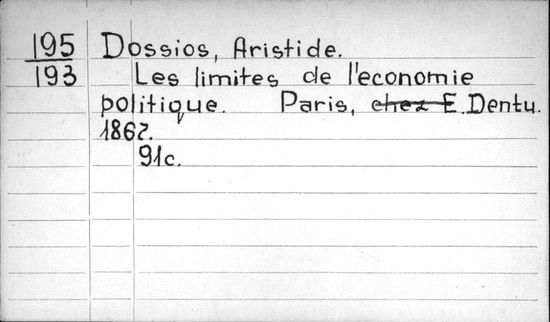 195 Dossios, Aristide.
193 Les limites de l'economie
politique. Paris, chez E. Dentu.
1867.
91c.